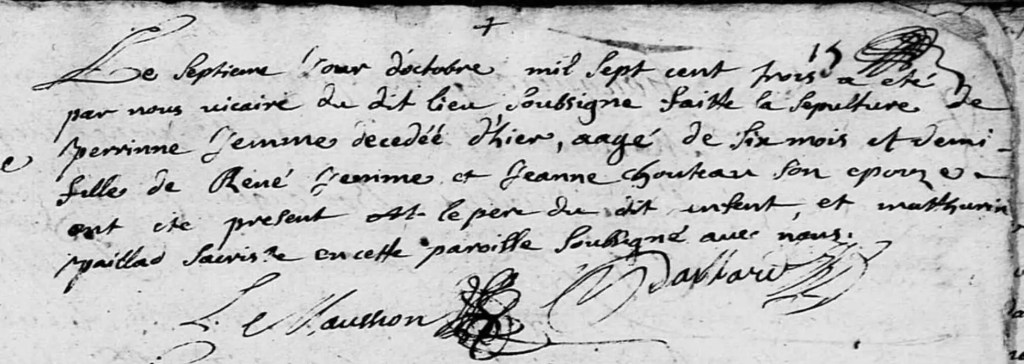 Le septieme jour d'octobre mil sept cent trois a eté
par nous vicaire du dit lieu soubsigne faitte la sepulture de
perrinne Jemme decedéé d'hier, aagé de six mois et demi -
fille de René Jemme et Jeanne chouteau son epouze -
ont ete present le pere du dit enfant, et matthurin
paillad en cette paroisse soussigné avec nous.